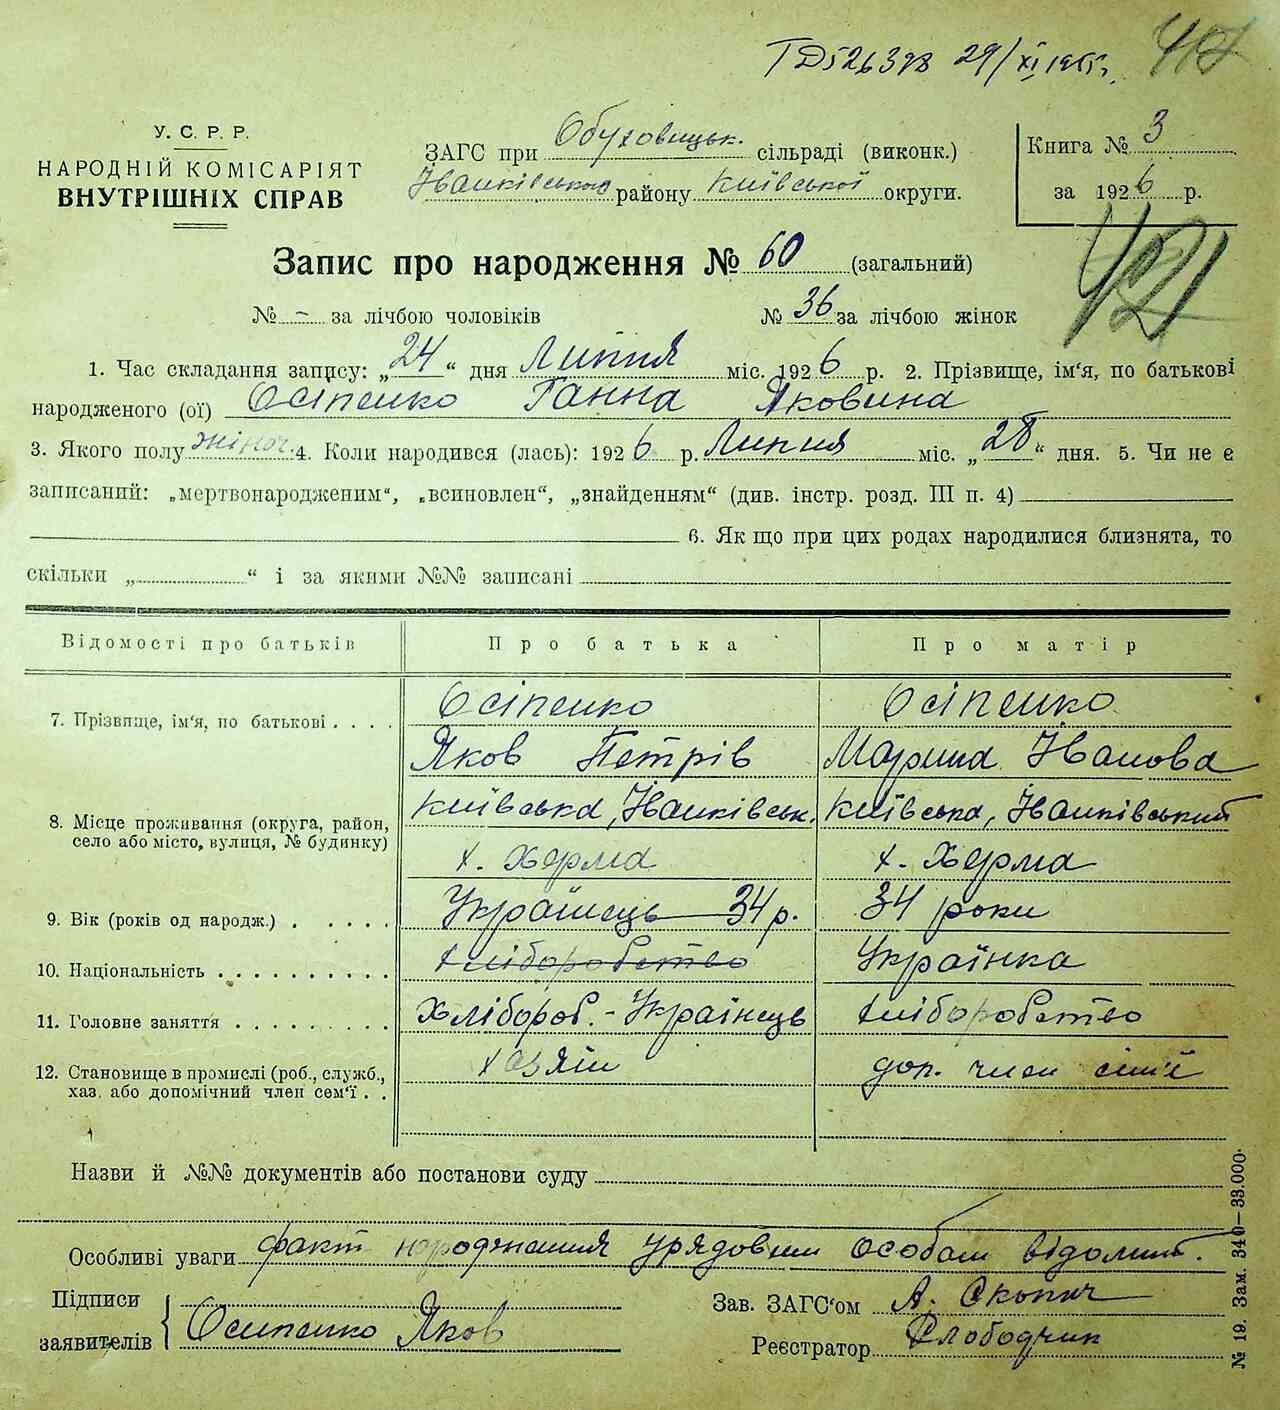 ТД526378 29/XI 1955г.
У. С. Р. Р.
НАРОДНІЙ КОМІСАРІЯТ
ВНУТРІШНІХ СПРАВ
ЗАГС при Обуховицьк. сільраді (виконк.)
Іванківського району Київської округи.
Книга № 3
за 1926 р.
Запис про народження № 60 (загальний)
421
№ – за лічбою чоловіків № 36 за лічбою жінок
1. Час складання запису: „24“ дня Липня міс. 1926 р. 2. Прізвище, ім‘я, по батькові
народженого (ої) Осіпенко Ганна Яковина
3. Якого полу жіноч. 4. Коли народився (лась): 1926 р. Липня міс. „28“ дня. 5. Чи не є
записаний: „мертвонародженим“, „всиновлен“, „знайденням“ (див. інстр. розд. III п. 4)
6. Як що при цих родах народилися близнята, то
скільки „ “ і за якими №№ записані
Відомості про батьків Про батька Про матір
7. Прізвище, ім‘я, по батькові . . . . Осіпенко Осіпенко
Яков Петрів Марина Іванова
8. Місце проживання (округа, район, село або місто, вулиця, № будинку) Київська, Іванківськ. Київська, Іванківський
х. Херма х. Херма
9. Вік (років од народж.) . . . . . Українець 34 р. 34 роки
10. Національність . . . . . . . . . . хліборобство Українка
11. Головне заняття . . . . . . . . . Хлібороб. - Українець хліборобство
12. Становище в промислі (роб., служб., хаз. або допомічний член сем‘ї . . хазяїн доп. член сім‘ї
Назви й №№ документів або постанови суду
Особливі уваги факт народження урядовим особам відомий.
Підписи
заявителів Осипенко Яков
Зав. ЗАГС‘ом А. Скопич
Реєстратор Слободчик
№ 19. Зам. 340—33.000.